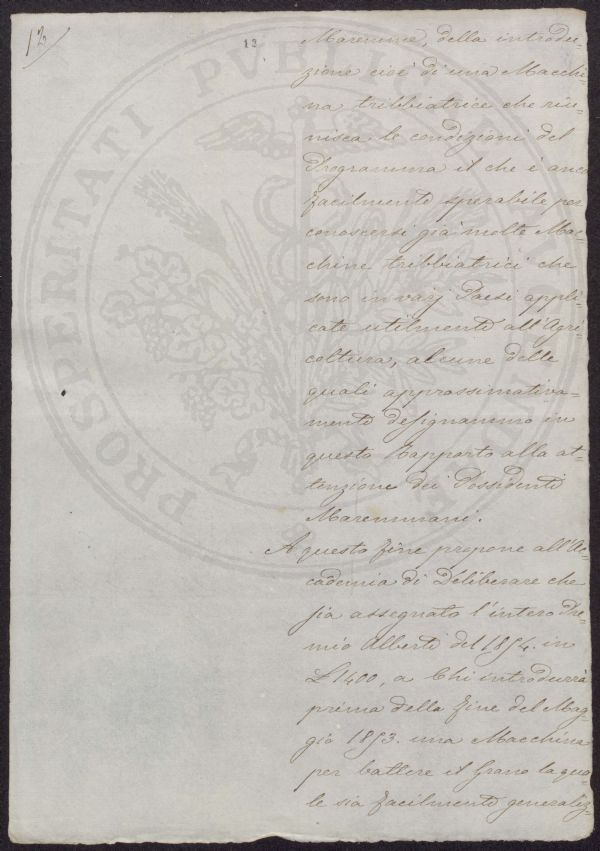 12
12
Maremme, della introdu-
zione cioè di una Macchi-
na tribbiatrice che riu-
nisca le condizioni del
Programma il che è anco
facilmente sperabile per
conoscersi già molte Mac-
chine tribbiatrici che
sono in varj Paesi appli-
cate utilmente all'Agri-
coltura, alcune delle
quali approssimativa-
mente designammo in
questo Rapporto alla at-
tenzione dei Possidenti
Maremmani.
A questo fine propone all'Ac-
cademia di Deliberare che
sia assegnato l'intero Pre-
mio Alberti del 1854. in
£ 1400, a Chi introdurrà
prima della fine del Mag-
gio 1853. una Macchina
per battere il Grano la qua-
le sia facilmente generaliz-
PROSPERITATI PVBLICAE